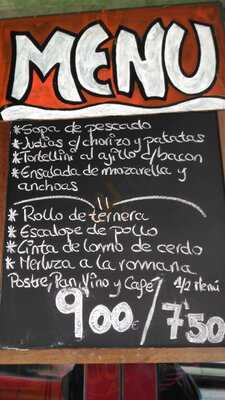 MENU
* Sopa de pescado
* Judias c/chorizo y patatas
* Tortellini al ajillo c/bacon
* Ensalada de mozarella y
anchoas
* Rollo de ternera
* Escalope de pollo
* Cinta de lomo de cerdo
* Merluza a la romana
Postre, Pan, Vino y Café 1/2 menú
900€ / 750